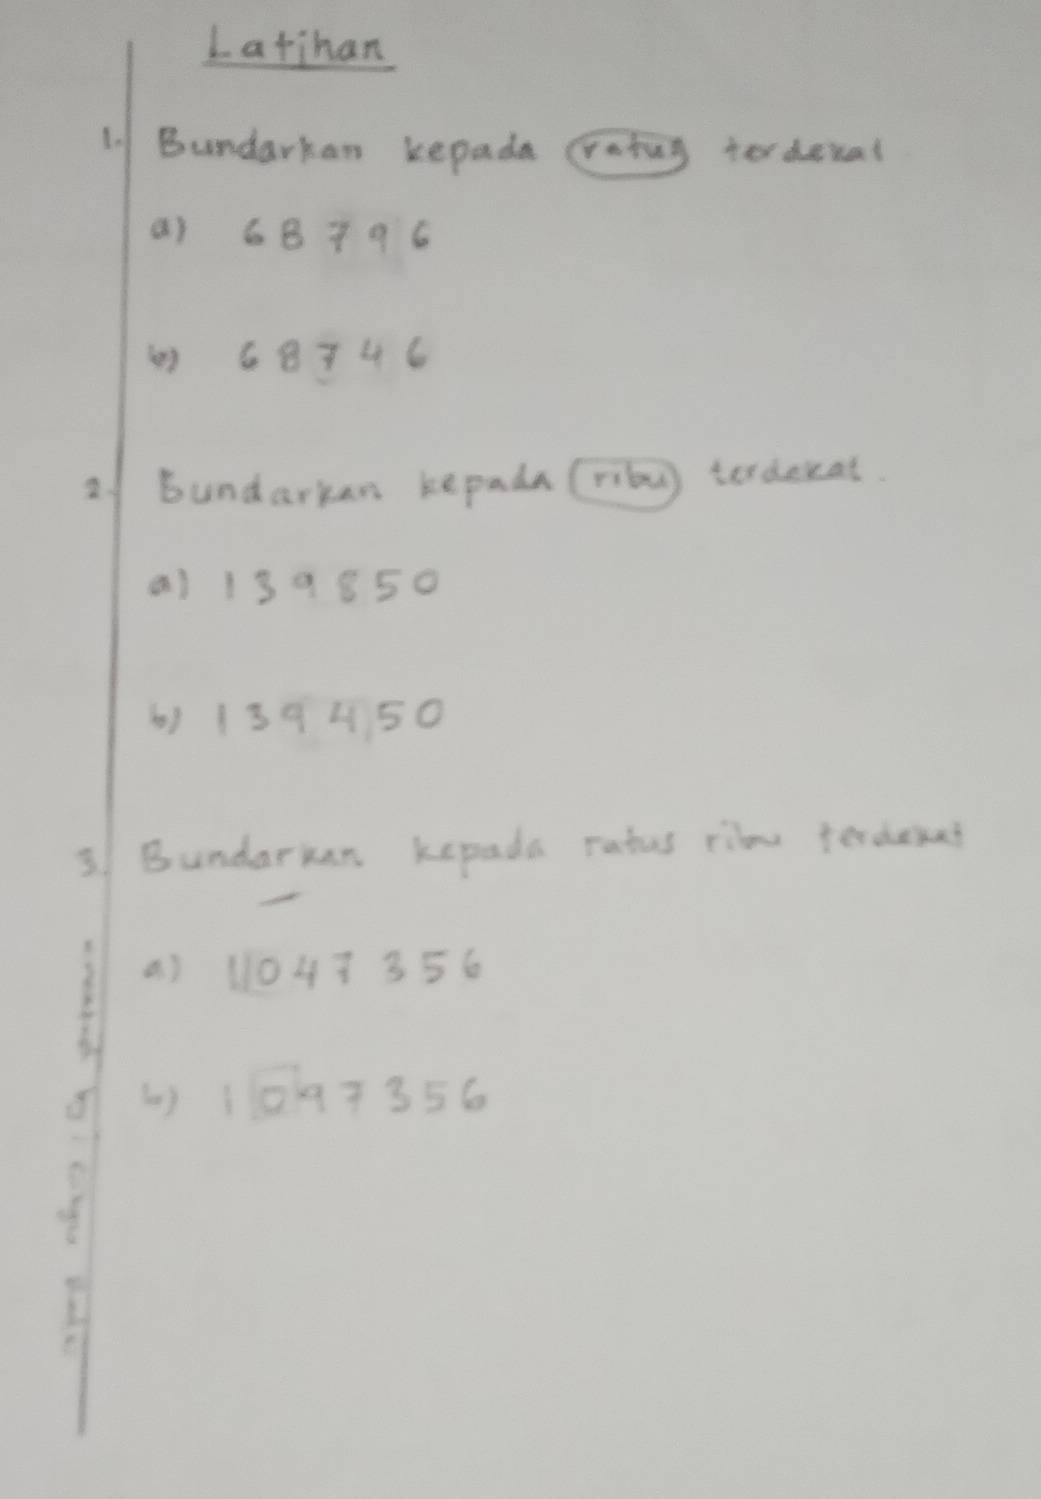 Latihan
1. Bundarkan kepada ratus terdekat
a) 68796
b) 68746
2. Bundarkan kepada ribu terdekat.
a) 139850
b) 139450
3. Bundarkan kepada ratus ribu terdekat
a) 1047356
b) 1097356